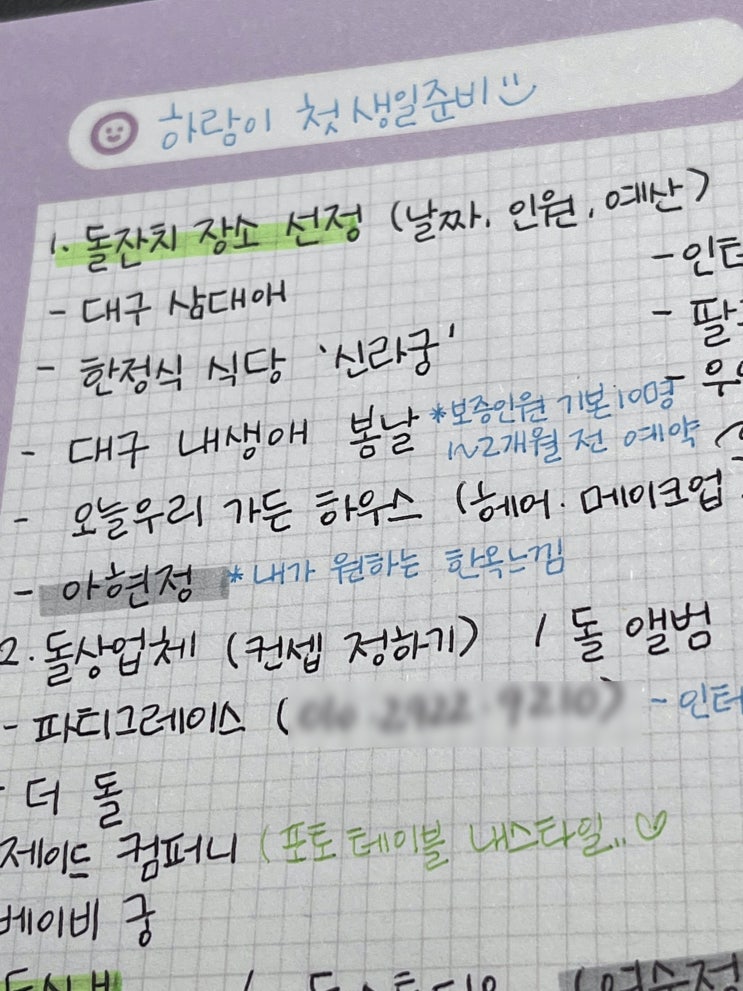 하람이 첫 생일준비
1. 돌잔치 장소 선정 (날짜, 인원, 예산)
- 대구 삼대애
- 한정식 식당 '신라궁'
- 대구 내생애 봄날 *보증인원 기본100명
1~2개월 전 예약
- 오늘우리 가든 하우스 (헤어·메이크업
- 아현정 *내가 원하는 한옥느낌
2. 돌상업체 (컨셉 정하기) / 돌 앨범
- 파티그레이스 (
- 더 돌
제이드 컴퍼니 (포토테이블 내스타일..♡
베이비 궁